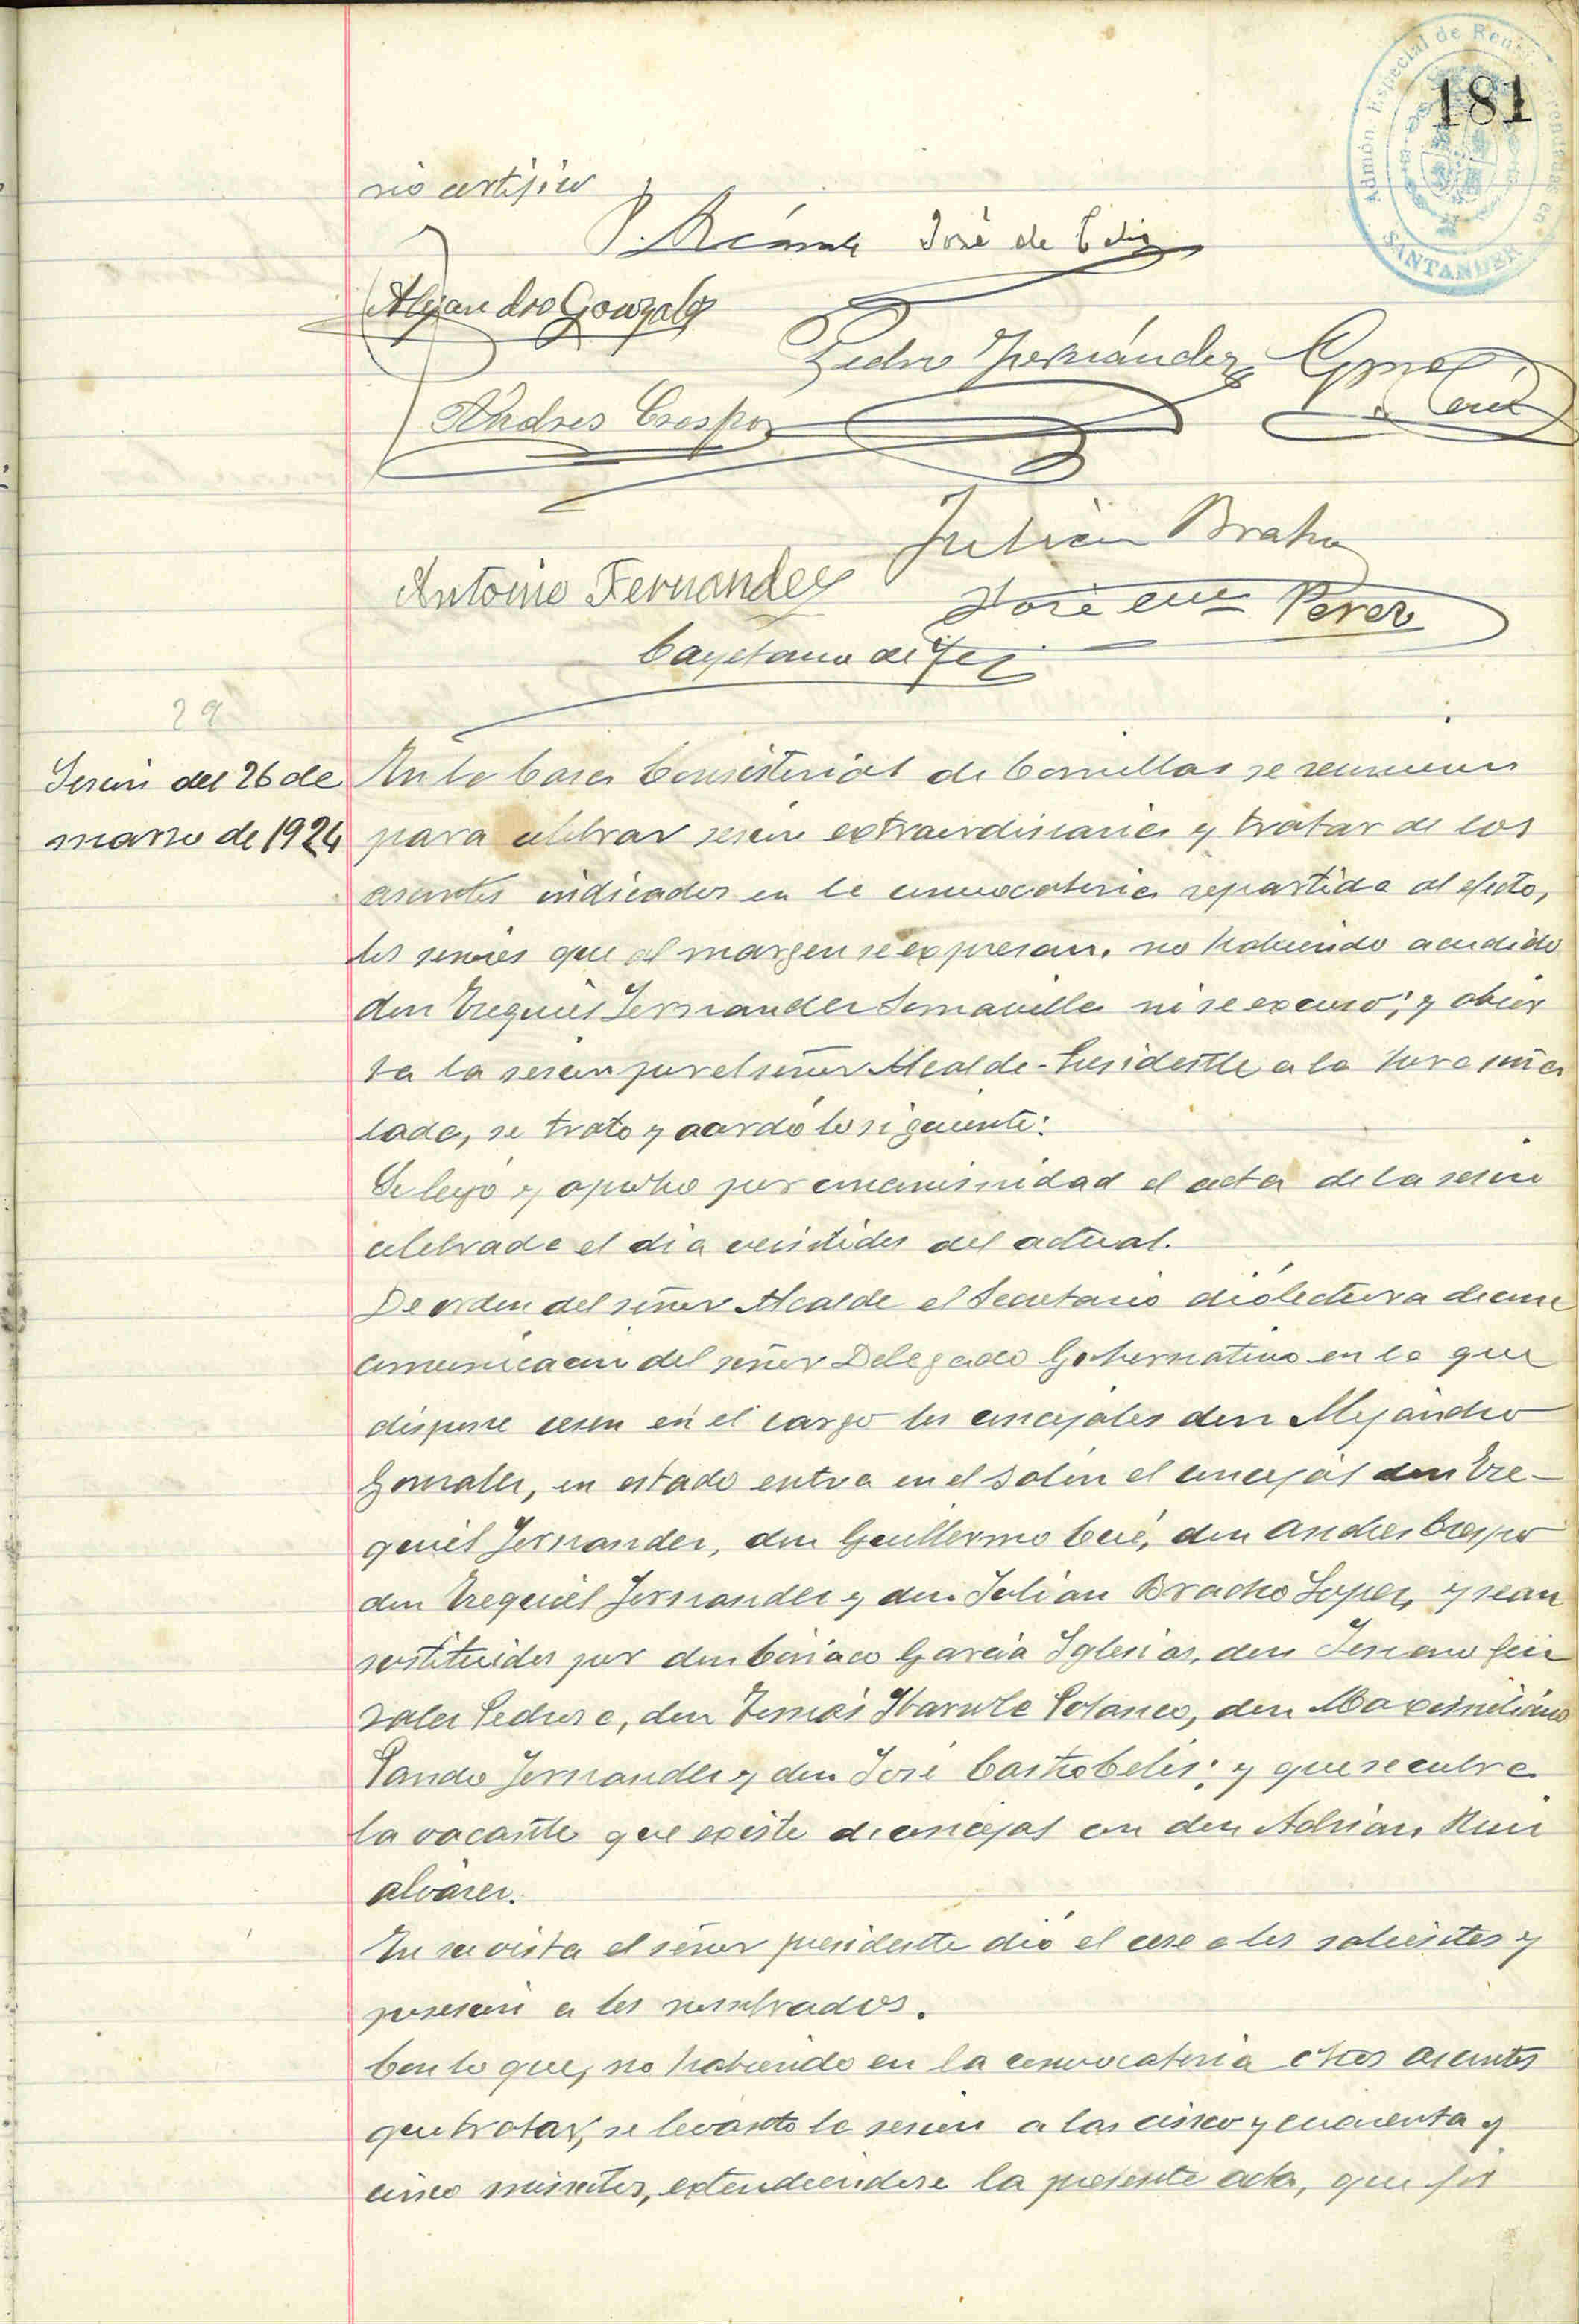 Admón. Especial de Rentas Arrendadas en
SANTANDER
181
rio certifico
José de
Alejandro Gonzalez
Pedro Fernández
Andres Crespo
Julian Bracho
Antonio Fernandez
José Perez
Cayetano de
29
Sesion del 26 de
marzo de 1924
En la Casa Consistorial de Comillas se reunieron
para celebrar sesion extraordinaria y tratar de los
asuntos indicados en la convocatoria repartida al efecto,
los señores que al margen se expresan, no habiendo acudido
don Ezequiel Fernandez ni se excusó; y abier
ta la sesion por el señor Alcalde-Presidente a la hora seña
lada, se trato y acordó lo siguiente:
Se leyo y aprobo por unanimidad el acta de la sesion
celebrada el dia veintidos del actual.
De orden del señor Alcalde el Secretario dió lectura de una
comunicacion del señor Delegado Gubernativo en la que
dispone cesen en el cargo los concejales don Alejandro
Gonzalez, en estado entra en el salon el concejal don Eze-
quiel Fernandez, don Guillermo Cué, don Andres Crespo
don Ezequiel Fernandez y don Julian Bracho Lopez, y sean
sostituidos por don Ciriaco Garcia Iglesias, don Gon
zalez Pedrera, don Tomás Polanco, don Maximiliano
Pando Fernandez y don José Castro Celis; y que se cubra
la vacante que existe de concejal con don Adrian Ruiz
Alvarez.
En su vista el señor presidente dió el cese a los salientes y
posesion a los nombrados.
Con lo que, no habiendo en la convocatoria otros asuntos
que tratar, se levanto la sesion a las cinco y cuarenta y
cinco minutos, extendiendose la presente acta, que fir